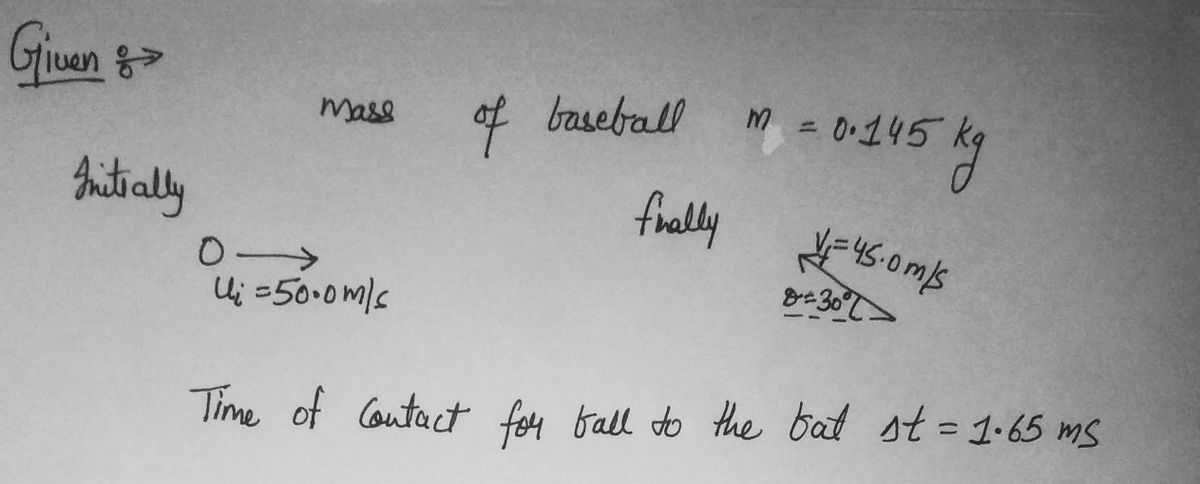 Given :→
mass of baseball m = 0.145 kg
Initially
finally
O →
Ui = 50.0 m/s
Vf = 45.0 m/s
θ = 30°
Time of Contact for ball to the bat Δt = 1.65 ms